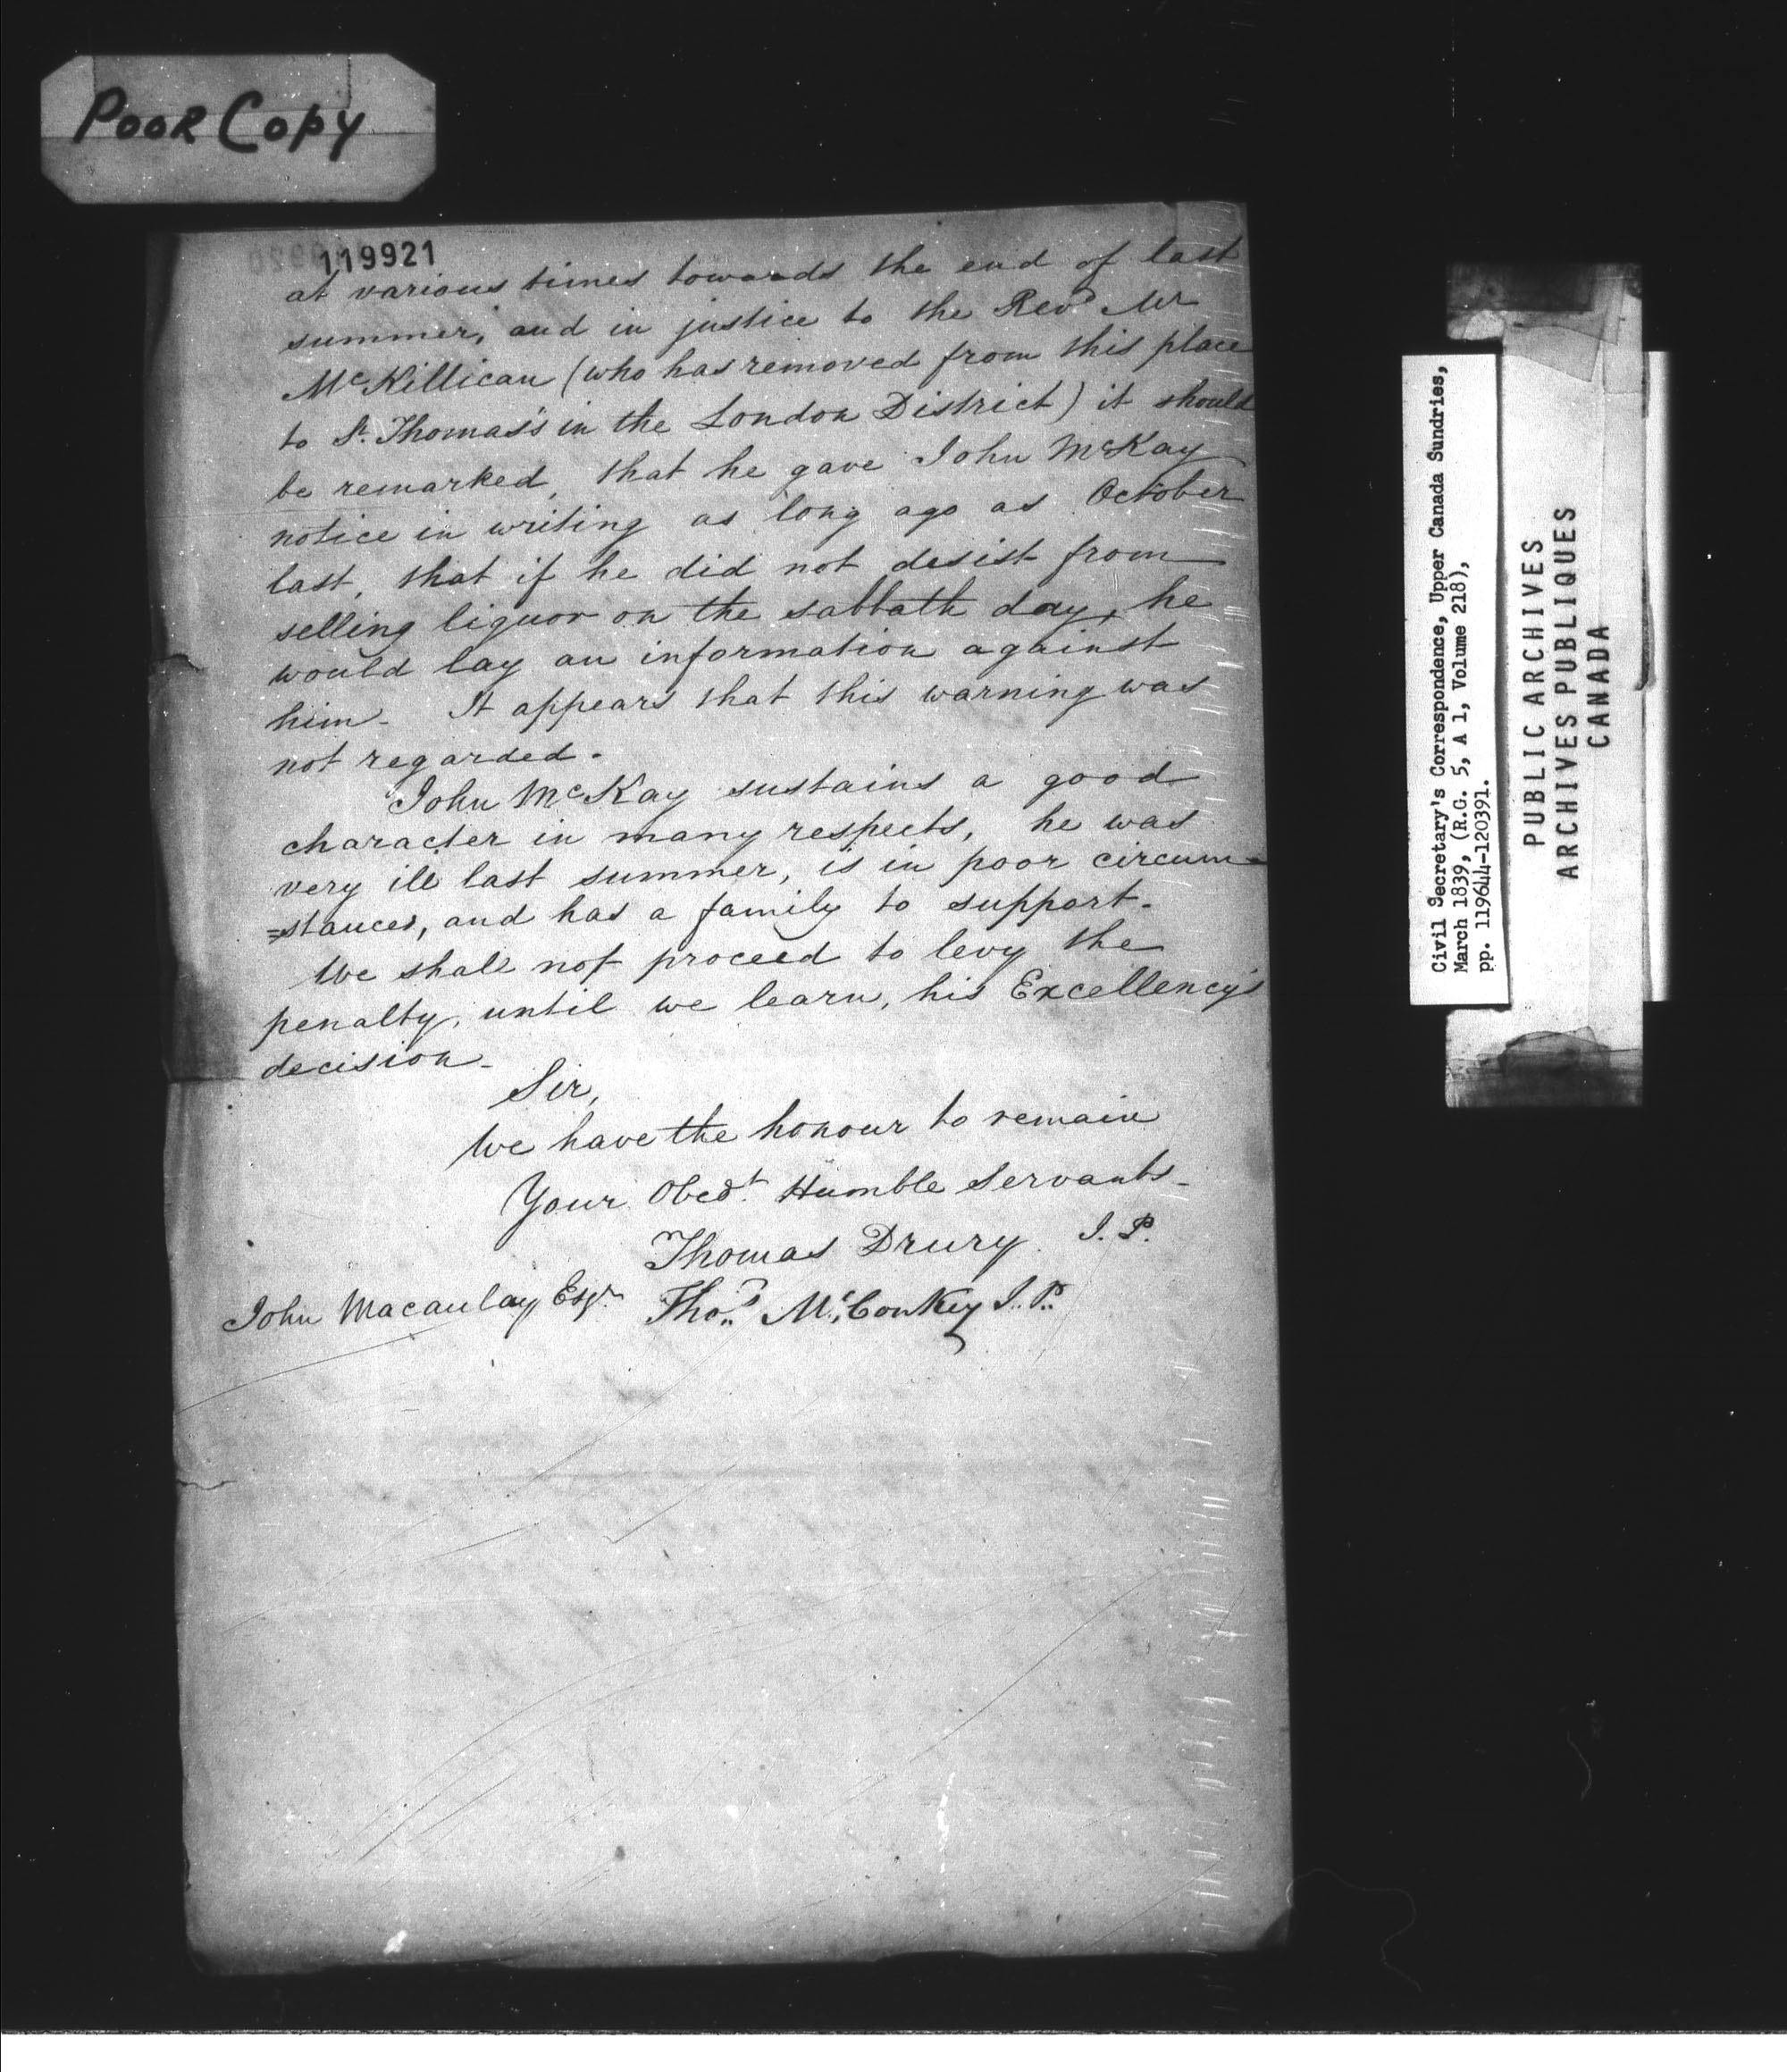 POOR COPY
119921
at various times towards the end of last
summer, and in justice to the Revd Mr
McKillican (who has removed from this place
to St. Thomas's in the London District) it should
be remarked, that he gave John McKay
notice in writing as long ago as October
last, that if he did not desist from
selling liquor on the sabbath day, he
would lay an information against
him - It appears that this warning was
not regarded -
John McKay sustains a good
character in many respects, he was
very ill last summer, is in poor circum-
=stances, and has a family to support -
We shall not proceed to levy the
penalty, until we learn, his Excellency's
decision -
Sir,
We have the honour to remain
Your Obedt. Humble Servants -
Thomas Drury. J.P.
John Macaulay Esqr. Thos. McConkey J.P.
Civil Secretary's Correspondence, Upper Canada Sundries,
March 1839, (R.G. 5, A 1, Volume 218),
pp. 119644-120391.
PUBLIC ARCHIVES
ARCHIVES PUBLIQUES
CANADA